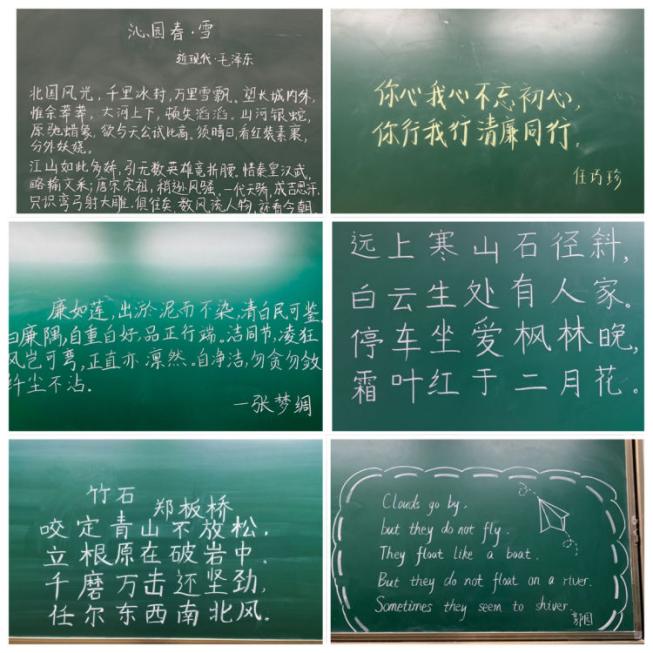 沁园春·雪
近现代·毛泽东
北国风光，千里冰封，万里雪飘。望长城内外，
惟余莽莽，大河上下，顿失滔滔。山河银蛇，
原驰蜡象，欲与天公试比高。须晴日，看红装素裹，
分外妖娆。
江山如此多娇，引无数英雄竞折腰。惜秦皇汉武，
略输文采；唐宗宋祖，稍逊风骚。一代天骄，成吉思汗，
只识弯弓射大雕。俱往矣，数风流人物，还看今朝。
你心我心不忘初心，
你行我行清廉同行。
任巧珍
廉如莲，出淤泥而不染，清白民可鉴
曰廉隅，自重自好，品正行端。洁同节，凌狂
风岂可弯，正直亦凛然。自净洁，勿贪勿敛
纤尘不沾。
一张梦绸
远上寒山石径斜，
白云生处有人家。
停车坐爱枫林晚，
霜叶红于二月花。
竹石 郑板桥
咬定青山不放松，
立根原在破岩中。
千磨万击还坚劲，
任尔东西南北风。
Clouds go by,
but they do not fly.
They float like a boat.
But they do not float on a river.
Sometimes they seem to shiver.